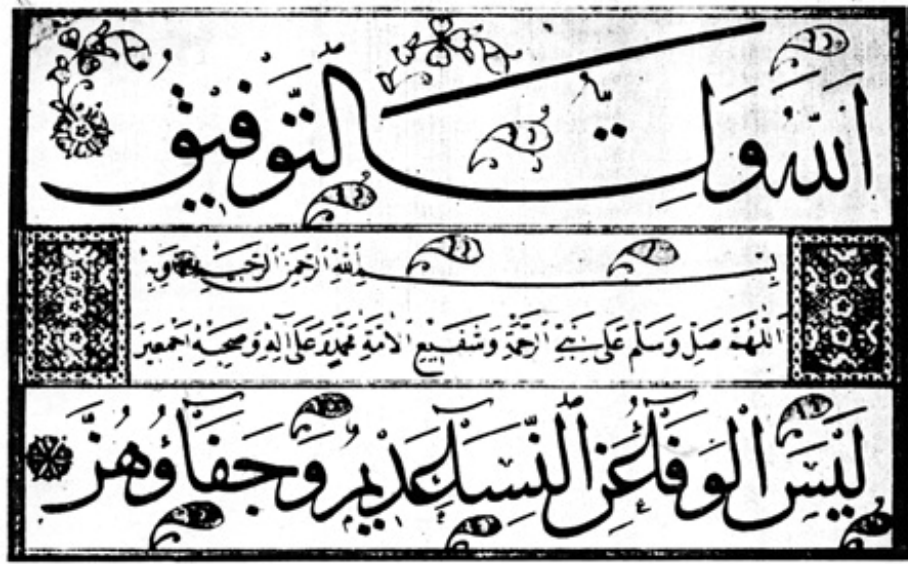 اَللّٰهُ وَلِيُّ التَّوْفِيقُ
بِسْمِ اللهِ الرَّحْمٰنِ الرَّحِيمِ وَبِهِ
اَللّٰهُمَّ صَلِّ وَسَلِّمْ عَلَى نَبِيِّ الرَّحْمَةِ وَشَفِيعِ الْأُمَّةِ مُحَمَّدٍ وَعَلَى آلِهِ وَصَحْبِهِ اَجْمَعِينَ
لَيْسَ الْوَفَا عَنِ النِّسَا عَدِيمُ وَجَفَاؤُهُنَّ